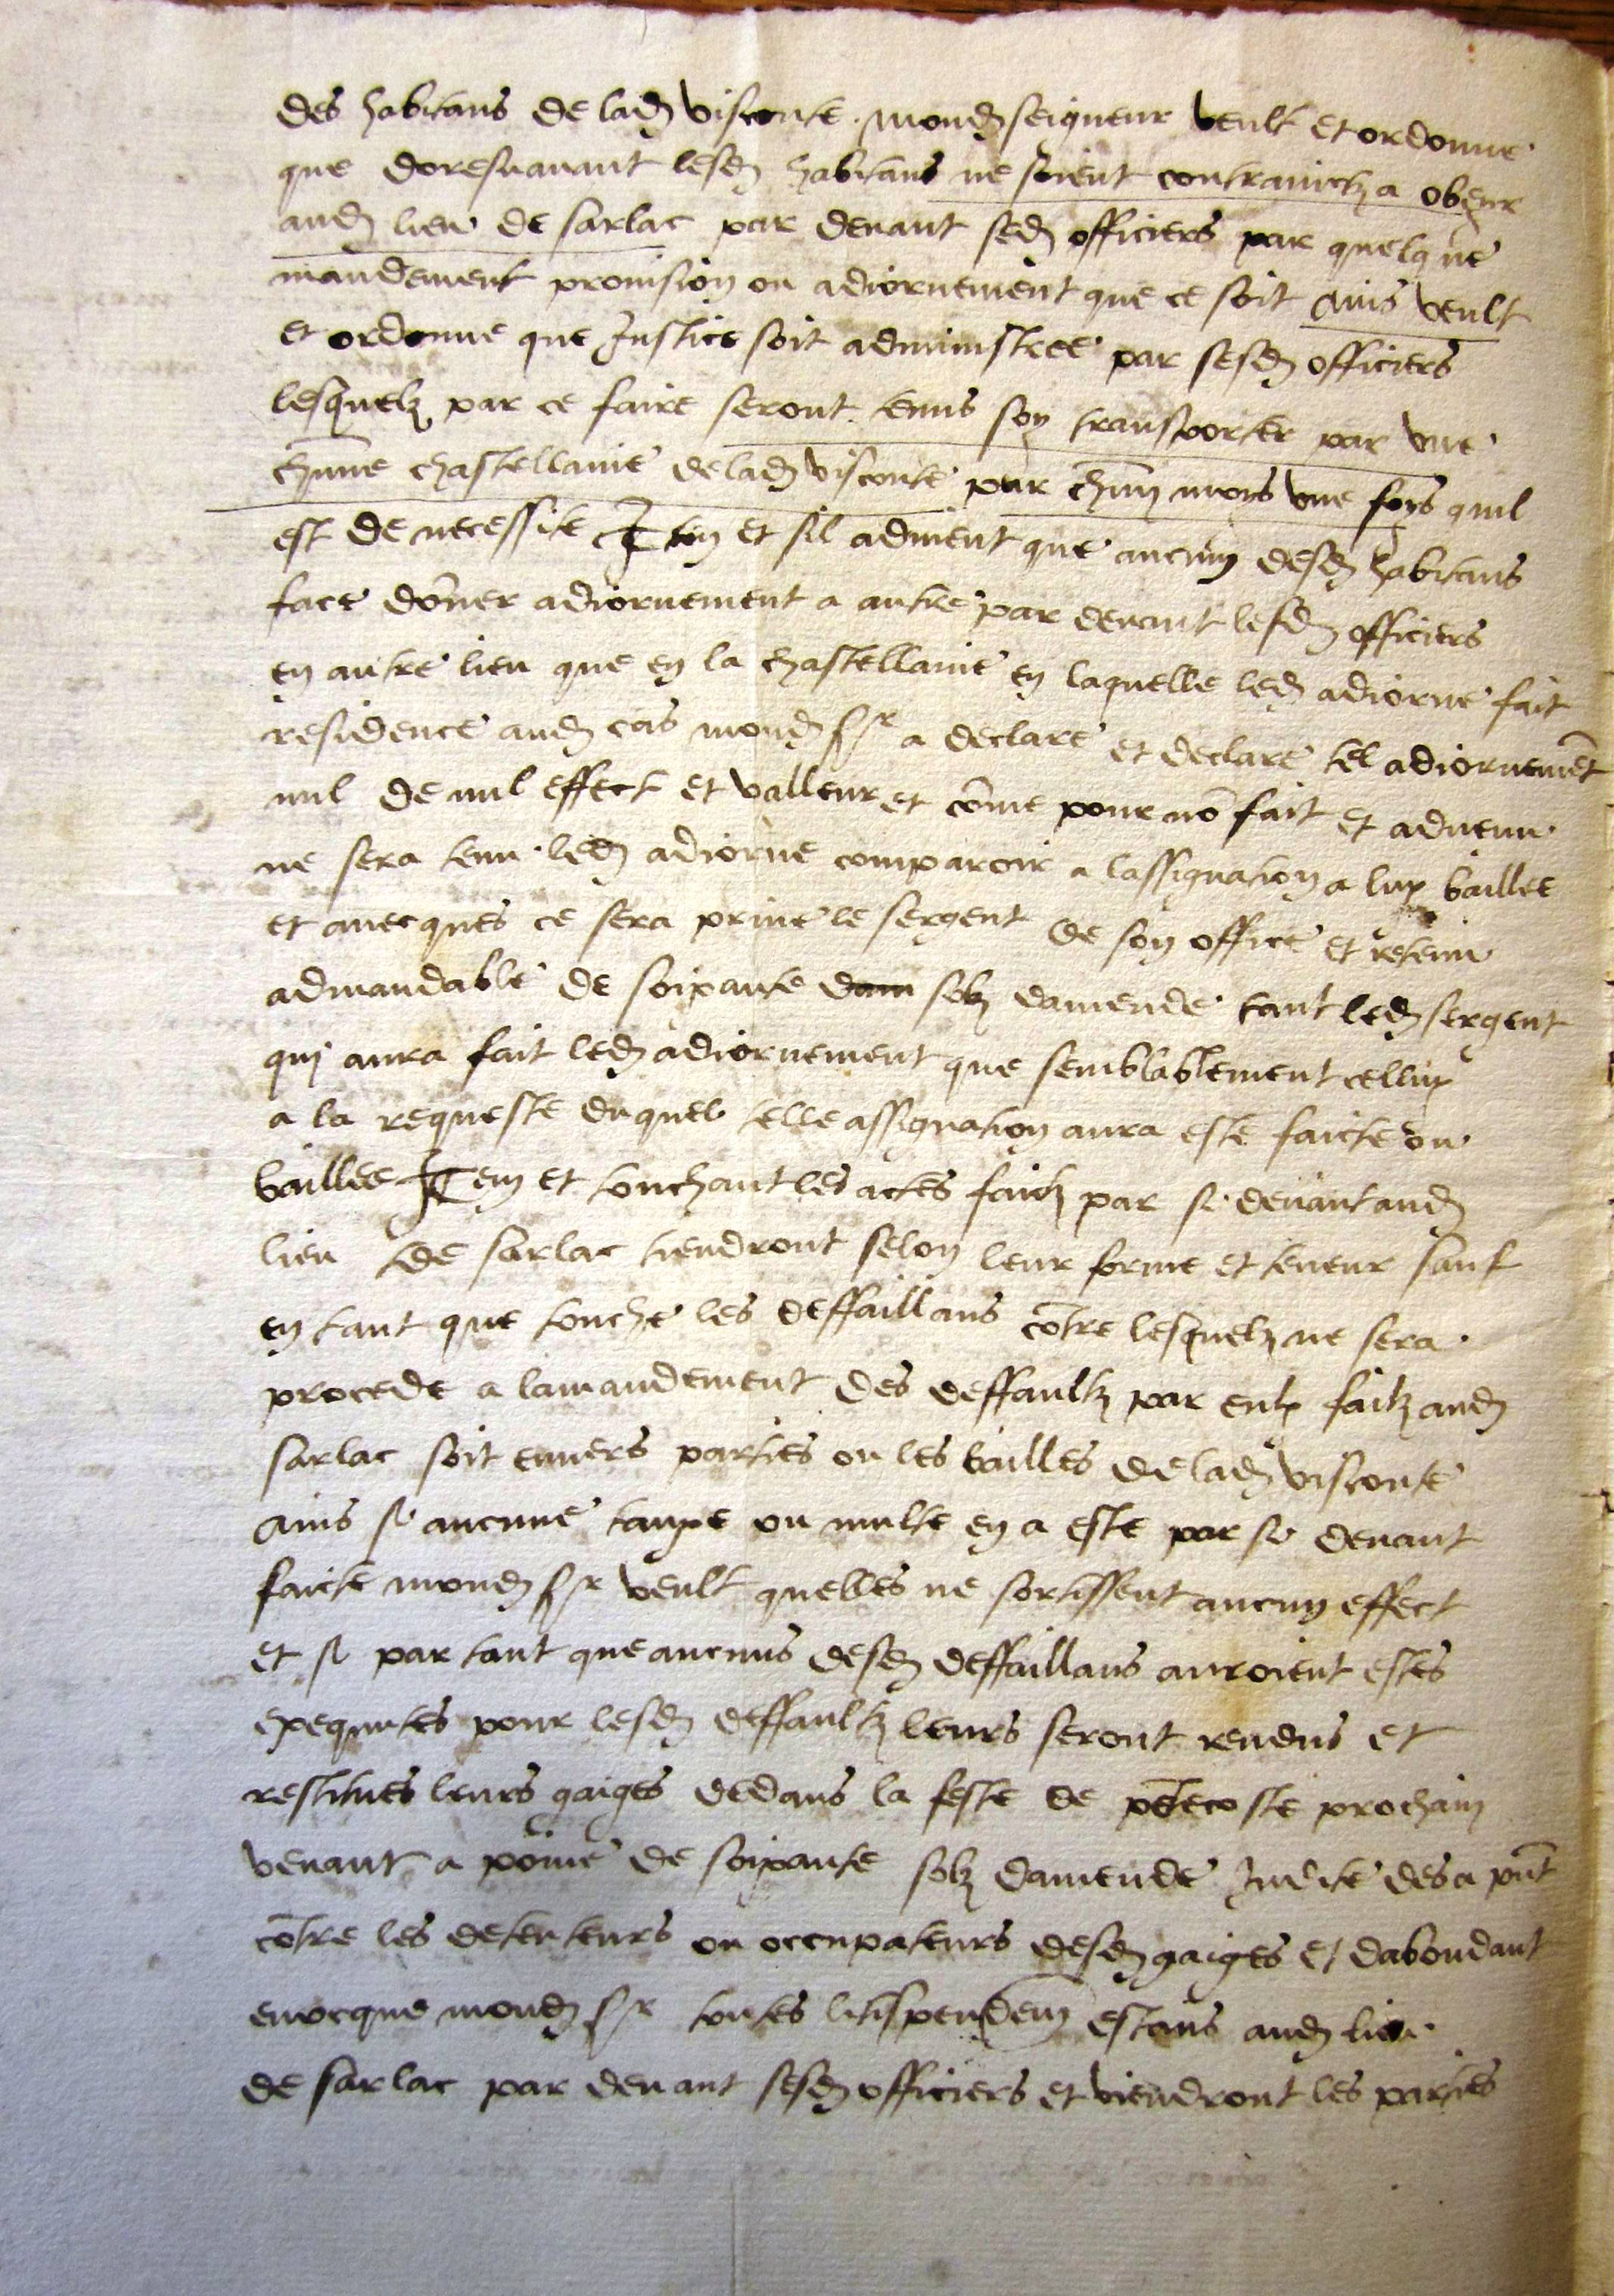 des habitans de lad visconte mond seigneur veult et ordonne
que doresnauant lesd habitans ne soient contrainctz a obeyr
aud lieu de sarlac par deuant sesd officiers par quelque
mandement prouision ou adiornement que ce soit Ains veult
et ordonne que Justice soit administree par sesd officiers
lesquelz par ce faire seront tenus soy transporter par une
chune chastellanie de lad visconte par chun mois une foys quil
est de necessite Item et sil aduient que aucun desd habitans
face doner adiornement a autre par deuant lesd officiers
en autre lieu que en la chastellanie en laquelle led adiorne fait
residence aud cas mond sr a declare et declare tel adiornemet
nul de nul effect et valleur et come pour no fait et aduenu
ne sera tenu led adiorne comparoir a lassignation a luy baillee
et auecques ce sera priue le sergent de son office et retenu
admandable de soixante dam solz damende tant led sergent
qui aura fait led adiornement que semblablement celluy
a la requeste duquel telle assignation aura este faicte ou
baillee Item et touchant les actes faictz par si deuant aud
lieu de sarlac tiendront selon leur forme et teneur sauf
en tant que touche les deffaillans cotre lesquelz ne sera
procede a lamandement des deffaultz par eulx faitz aud
sarlac soit enuers parties ou les bailles de lad visconte
Ains si aucune tauxe ou multe en a este par si deuant
faicte mond sr veult quelles ne sortissent aucun effect
et si par tant que aucuns desd deffaillans auroient estes
exequutes pour lesd deffaultz leurs seront rendus et
restitues leurs gaiges dedans la feste de petecoste prochain
venant a poine de soixante solz damende Indicte des a pnt
cotre les detenteurs ou occupateurs desd gaiges et dabondant
euocque mond sr toutes litispenden estans aud lieu
de sarlac par deuant sesd officiers et viendront les parties